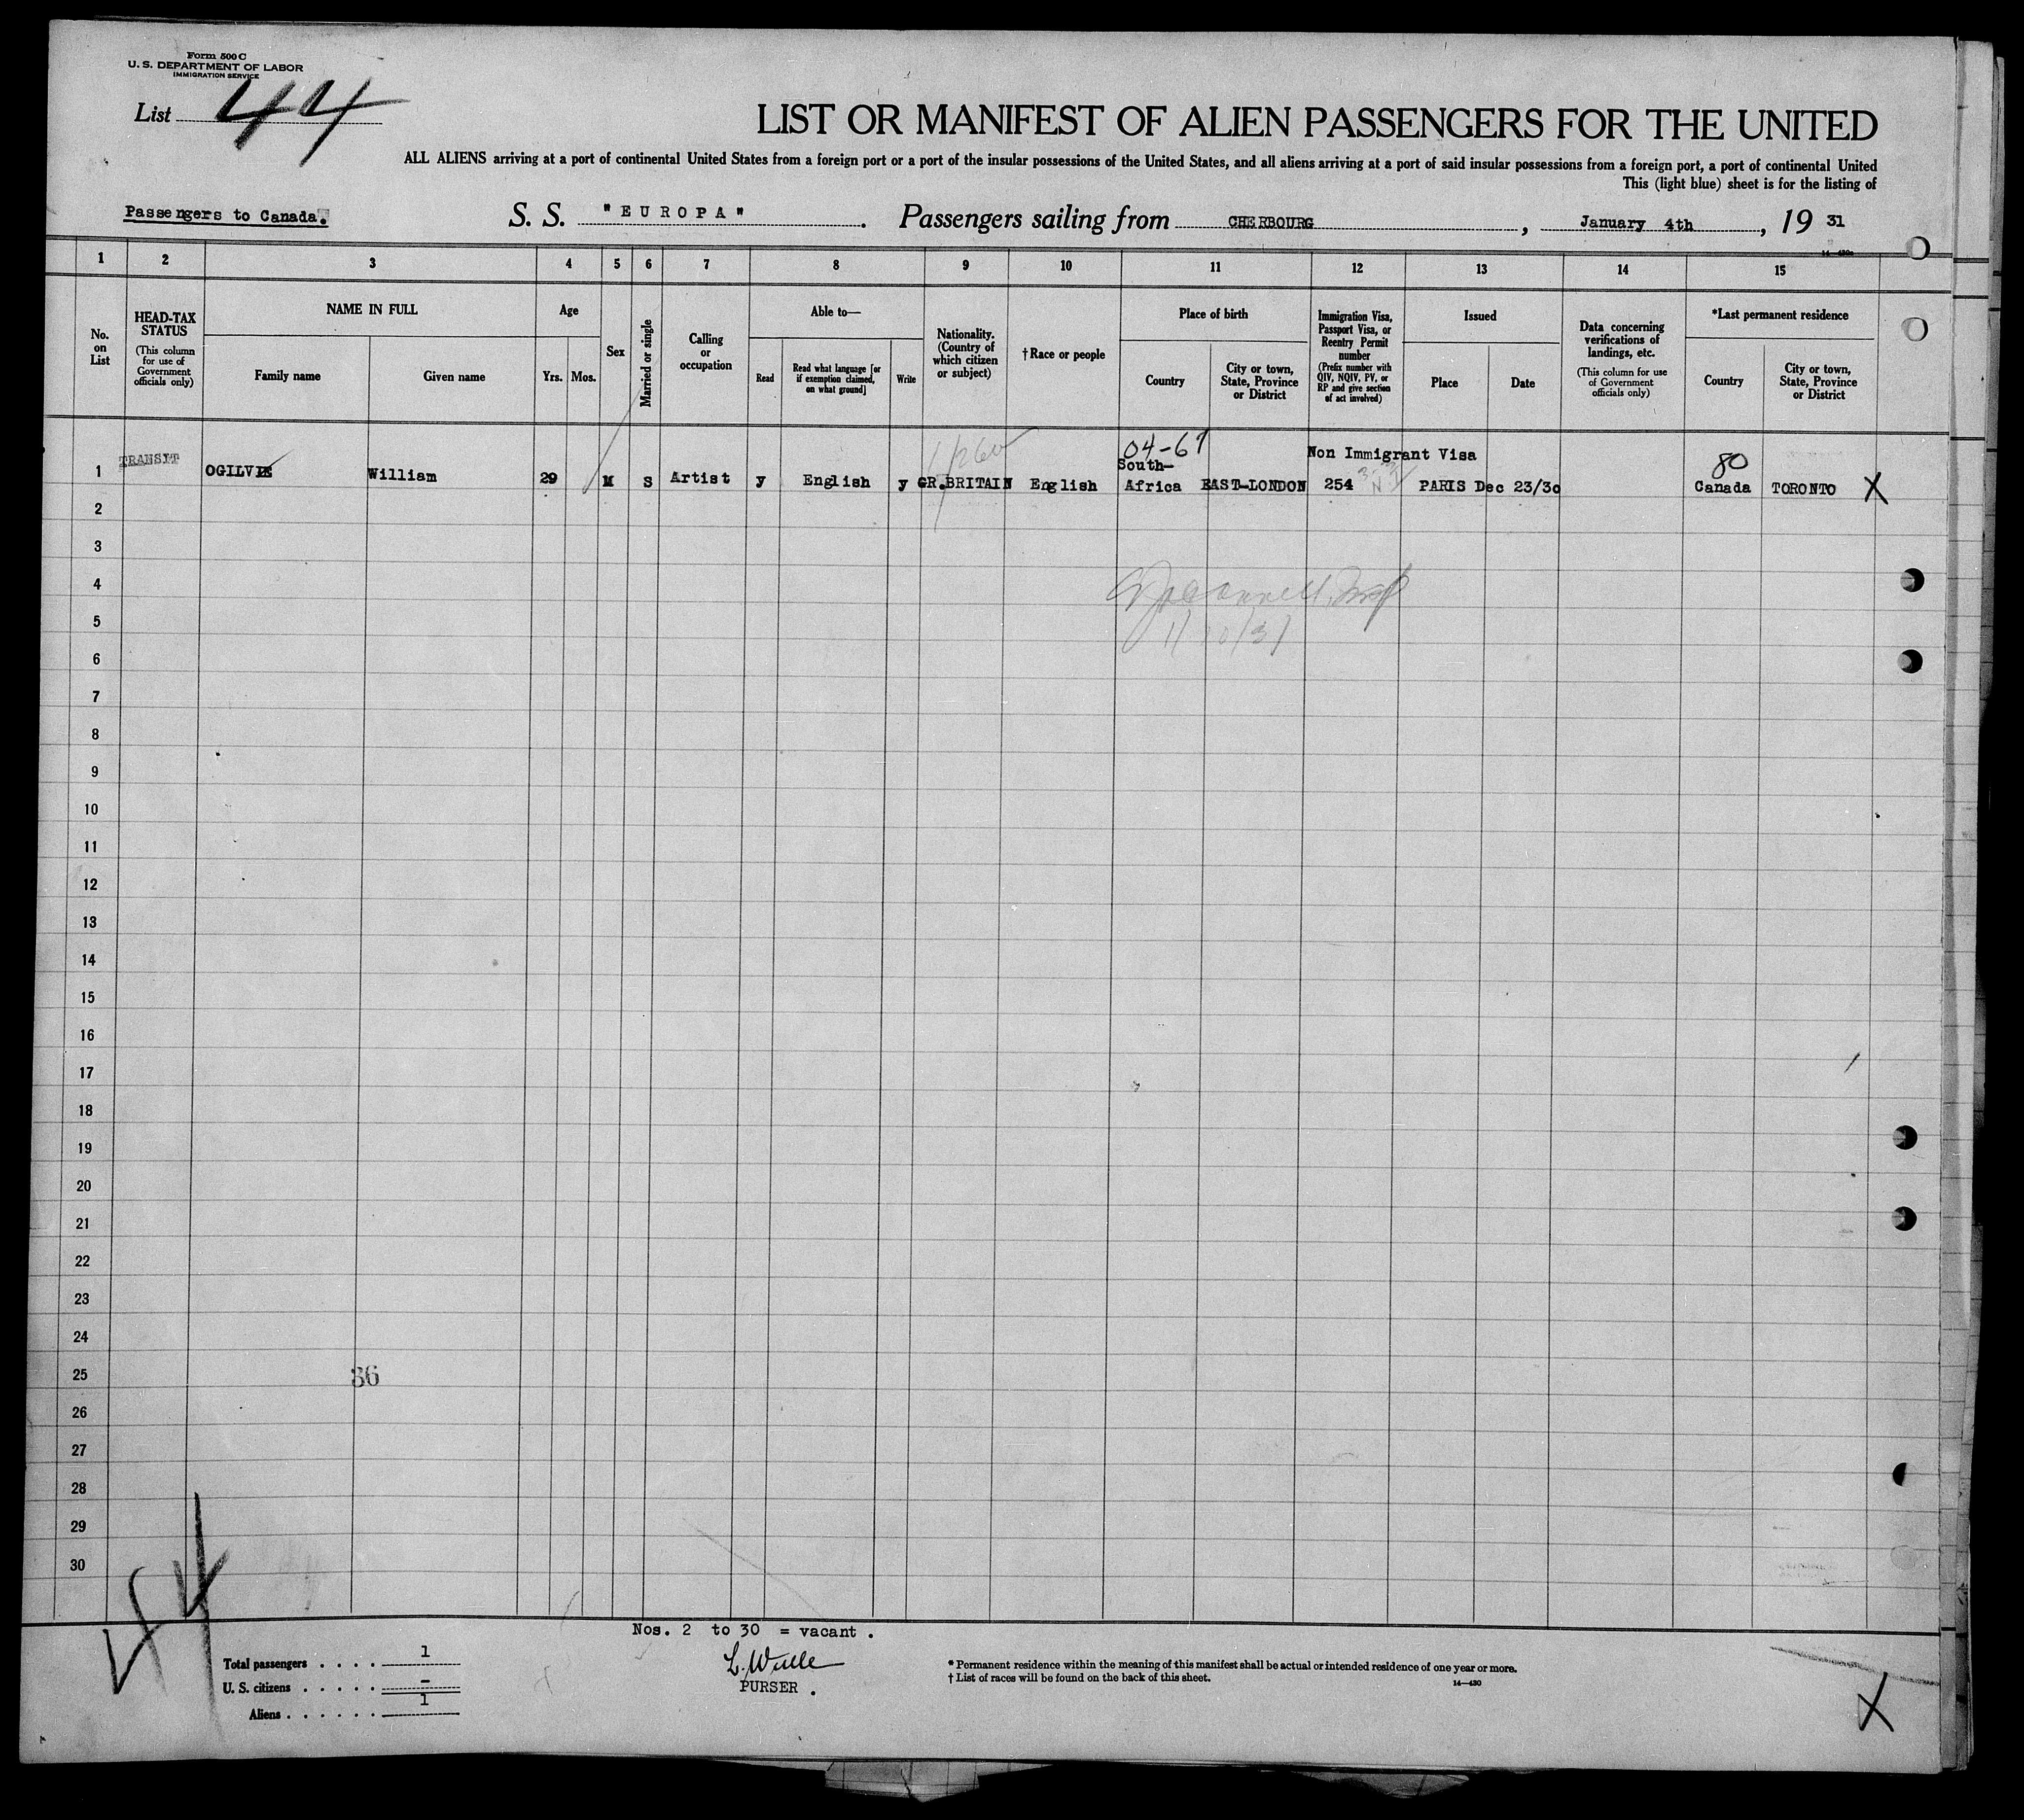 Form 500 C
U. S. DEPARTMENT OF LABOR
IMMIGRATION SERVICE
List 44
LIST OR MANIFEST OF ALIEN PASSENGERS FOR THE UNITED
ALL ALIENS arriving at a port of continental United States from a foreign port or a port of the insular possessions of the United States, and all aliens arriving at a port of said insular possessions from a foreign port, a port of continental United
This (light blue) sheet is for the listing of
Passengers to Canada. S. S. "EUROPA". Passengers sailing from CHERBOURG, January 4th, 19 31
1 2 3 4 5 6 7 8 9 10 11 12 13 14 15
No. on List
HEAD-TAX STATUS
(This column for use of Government officials only)
NAME IN FULL
Family name
Given name
Age
Yrs. Mos.
Sex
Married or single
Calling or occupation
Able to—
Read
Read what language [or if exemption claimed, on what ground]
Write
Nationality. (Country of which citizen or subject)
†Race or people
Place of birth
Country
City or town, State, Province or District
Immigration Visa, Passport Visa, or Reentry Permit number
(Prefix number with QIV, NQIV, PV, or RP and give section of act involved)
Issued
Place
Date
Data concerning verifications of landings, etc.
(This column for use of Government officials only)
*Last permanent residence
Country
City or town, State, Province or District
04-67
TRANSIT Non Immigrant Visa 80
1 OGILVIE William 29 M S Artist y English y GR.BRITAIN English South-Africa EAST-LONDON 254 PARIS Dec 23/30 Canada TORONTO X
2
3
4
5
6
7
8
9
10
11
12
13
14
15
16
17
18
19
20
21
22
23
24
25
86
26
27
28
29
30
44
Nos. 2 to 30 = vacant .
Total passengers . . . . 1
U. S. citizens . . . . . -
Aliens . . . . . . 1
PURSER .
* Permanent residence within the meaning of this manifest shall be actual or intended residence of one year or more.
† List of races will be found on the back of this sheet.
14—430
X